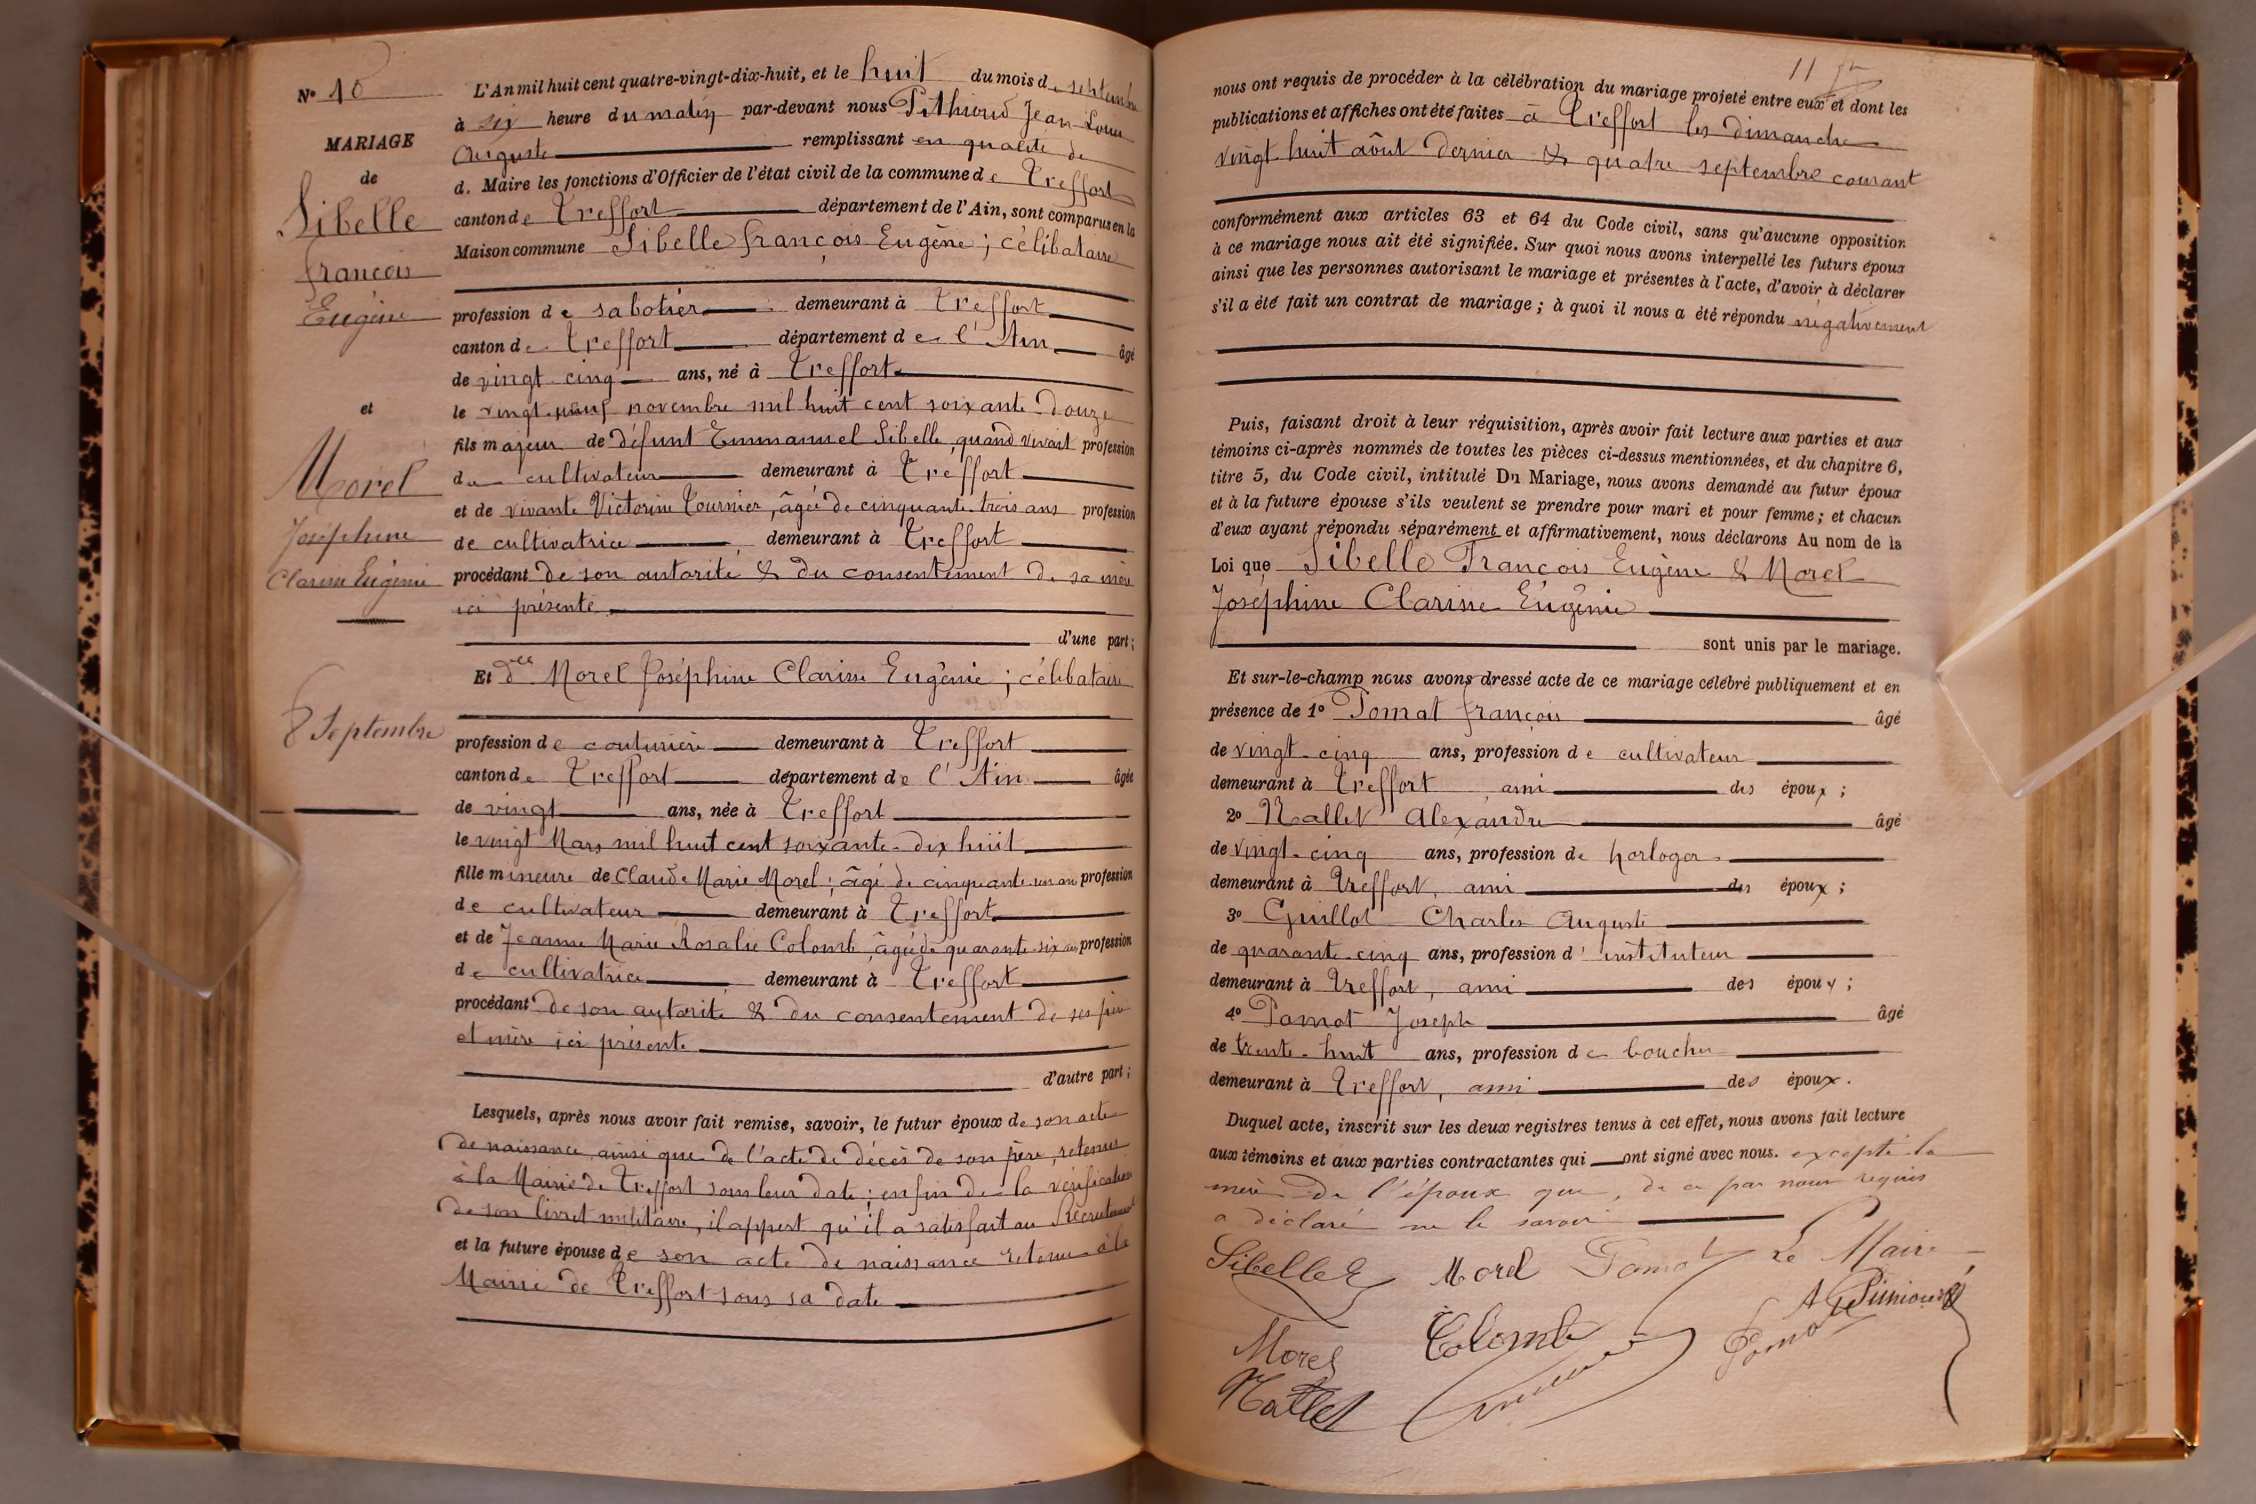 N° 10
MARIAGE
de
Sibelle
François
Eugène
et
Morel
Joséphine
Clarisse Eugénie
8 Septembre
L'An mil huit cent quatre-vingt-dix-huit, et le huit du mois de septembre
à six heure du matin par-devant nous Jean Louis
Auguste remplissant en qualité de
d. Maire les fonctions d'Officier de l'état civil de la commune de Treffort
canton de Treffort département de l'Ain, sont comparus en la
Maison commune Sibelle François Eugène ; célibataire
profession de sabotier demeurant à Treffort
canton de Treffort département de l'Ain âgé
de vingt cinq ans, né à Treffort
le vingt-neuf novembre mil huit cent soixante-douze
fils majeur de défunt Emmanuel Sibelle, quand vivait profession
de cultivateur demeurant à Treffort
et de vivante Victorine Tournier, âgée de cinquante-trois ans profession
de cultivatrice demeurant à Treffort
procédant de son autorité & du consentement de sa mère
ici présente
d'une part ;
Et dlle Morel Joséphine Clarisse Eugénie ; célibataire
profession de couturière demeurant à Treffort
canton de Treffort département de l'Ain âgée
de vingt ans, née à Treffort
le vingt Mars mil huit cent soixante-dix huit
fille mineure de Claude Marie Morel ; âgé de cinquante-un an profession
de cultivateur demeurant à Treffort
et de Jeanne Marie Rosalie Colomb, âgée de quarante-six ans profession
de cultivatrice demeurant à Treffort
procédant de son autorité & du consentement de ses père
et mère ici présents
d'autre part ;
Lesquels, après nous avoir fait remise, savoir, le futur époux de son acte
de naissance ainsi que de l'acte de décès de son père, retenus
à la Mairie de Treffort sous leur date ; enfin de la vérification
de son livret militaire, il appert qu'il a satisfait au Recrutement
et la future épouse de son acte de naissance retenu à la
Mairie de Treffort sous sa date
11
nous ont requis de procéder à la célébration du mariage projeté entre eux et dont les
publications et affiches ont été faites à Treffort les dimanche
vingt huit août dernier & quatre septembre courant
conformément aux articles 63 et 64 du Code civil, sans qu'aucune opposition
à ce mariage nous ait été signifiée. Sur quoi nous avons interpellé les futurs époux
ainsi que les personnes autorisant le mariage et présentes à l'acte, d'avoir à déclarer
s'il a été fait un contrat de mariage ; à quoi il nous a été répondu négativement
Puis, faisant droit à leur réquisition, après avoir fait lecture aux parties et aux
témoins ci-après nommés de toutes les pièces ci-dessus mentionnées, et du chapitre 6,
titre 5, du Code civil, intitulé Du Mariage, nous avons demandé au futur époux
et à la future épouse s'ils veulent se prendre pour mari et pour femme ; et chacun
d'eux ayant répondu séparément et affirmativement, nous déclarons Au nom de la
Loi que Sibelle François Eugène & Morel
Joséphine Clarisse Eugénie
sont unis par le mariage.
Et sur-le-champ nous avons dressé acte de ce mariage célébré publiquement et en
présence de 1° Pomat François âgé
de vingt-cinq ans, profession de cultivateur
demeurant à Treffort ami des époux ;
2° Nallet Alexandre âgé
de vingt-cinq ans, profession de horloger
demeurant à Treffort, ami des époux ;
3° Guillot Charles Auguste
de quarante-cinq ans, profession d'instituteur
demeurant à Treffort, ami des époux ;
4° Pomat Joseph âgé
de trente-huit ans, profession de boucher
demeurant à Treffort, ami des époux.
Duquel acte, inscrit sur les deux registres tenus à cet effet, nous avons fait lecture
aux témoins et aux parties contractantes qui ont signé avec nous. excepté la
mère de l'époux que, de ce par nous requis
a déclaré ne le savoir
Sibelle E Morel Pomat Le Maire
Morel Colomb Pomat
Nallet